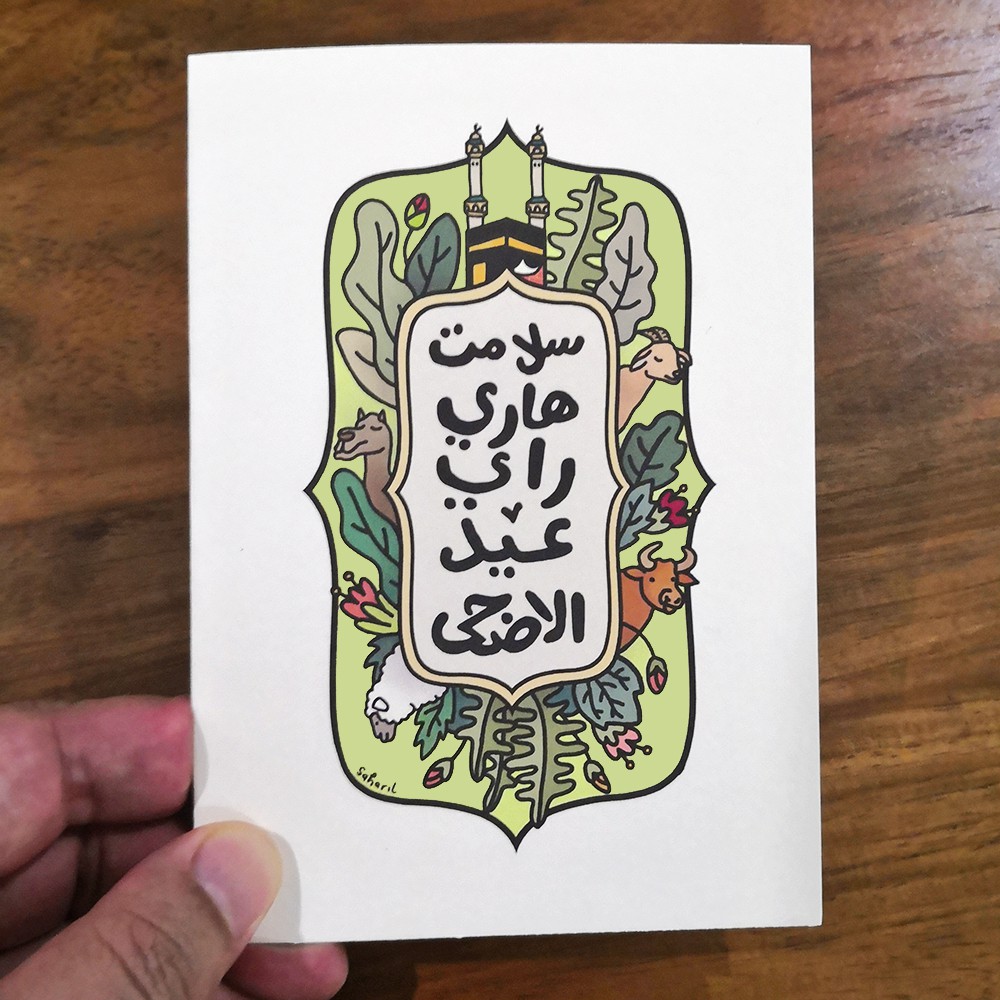 سلامت
هاري
راي
عيد
الاضحى
saharil